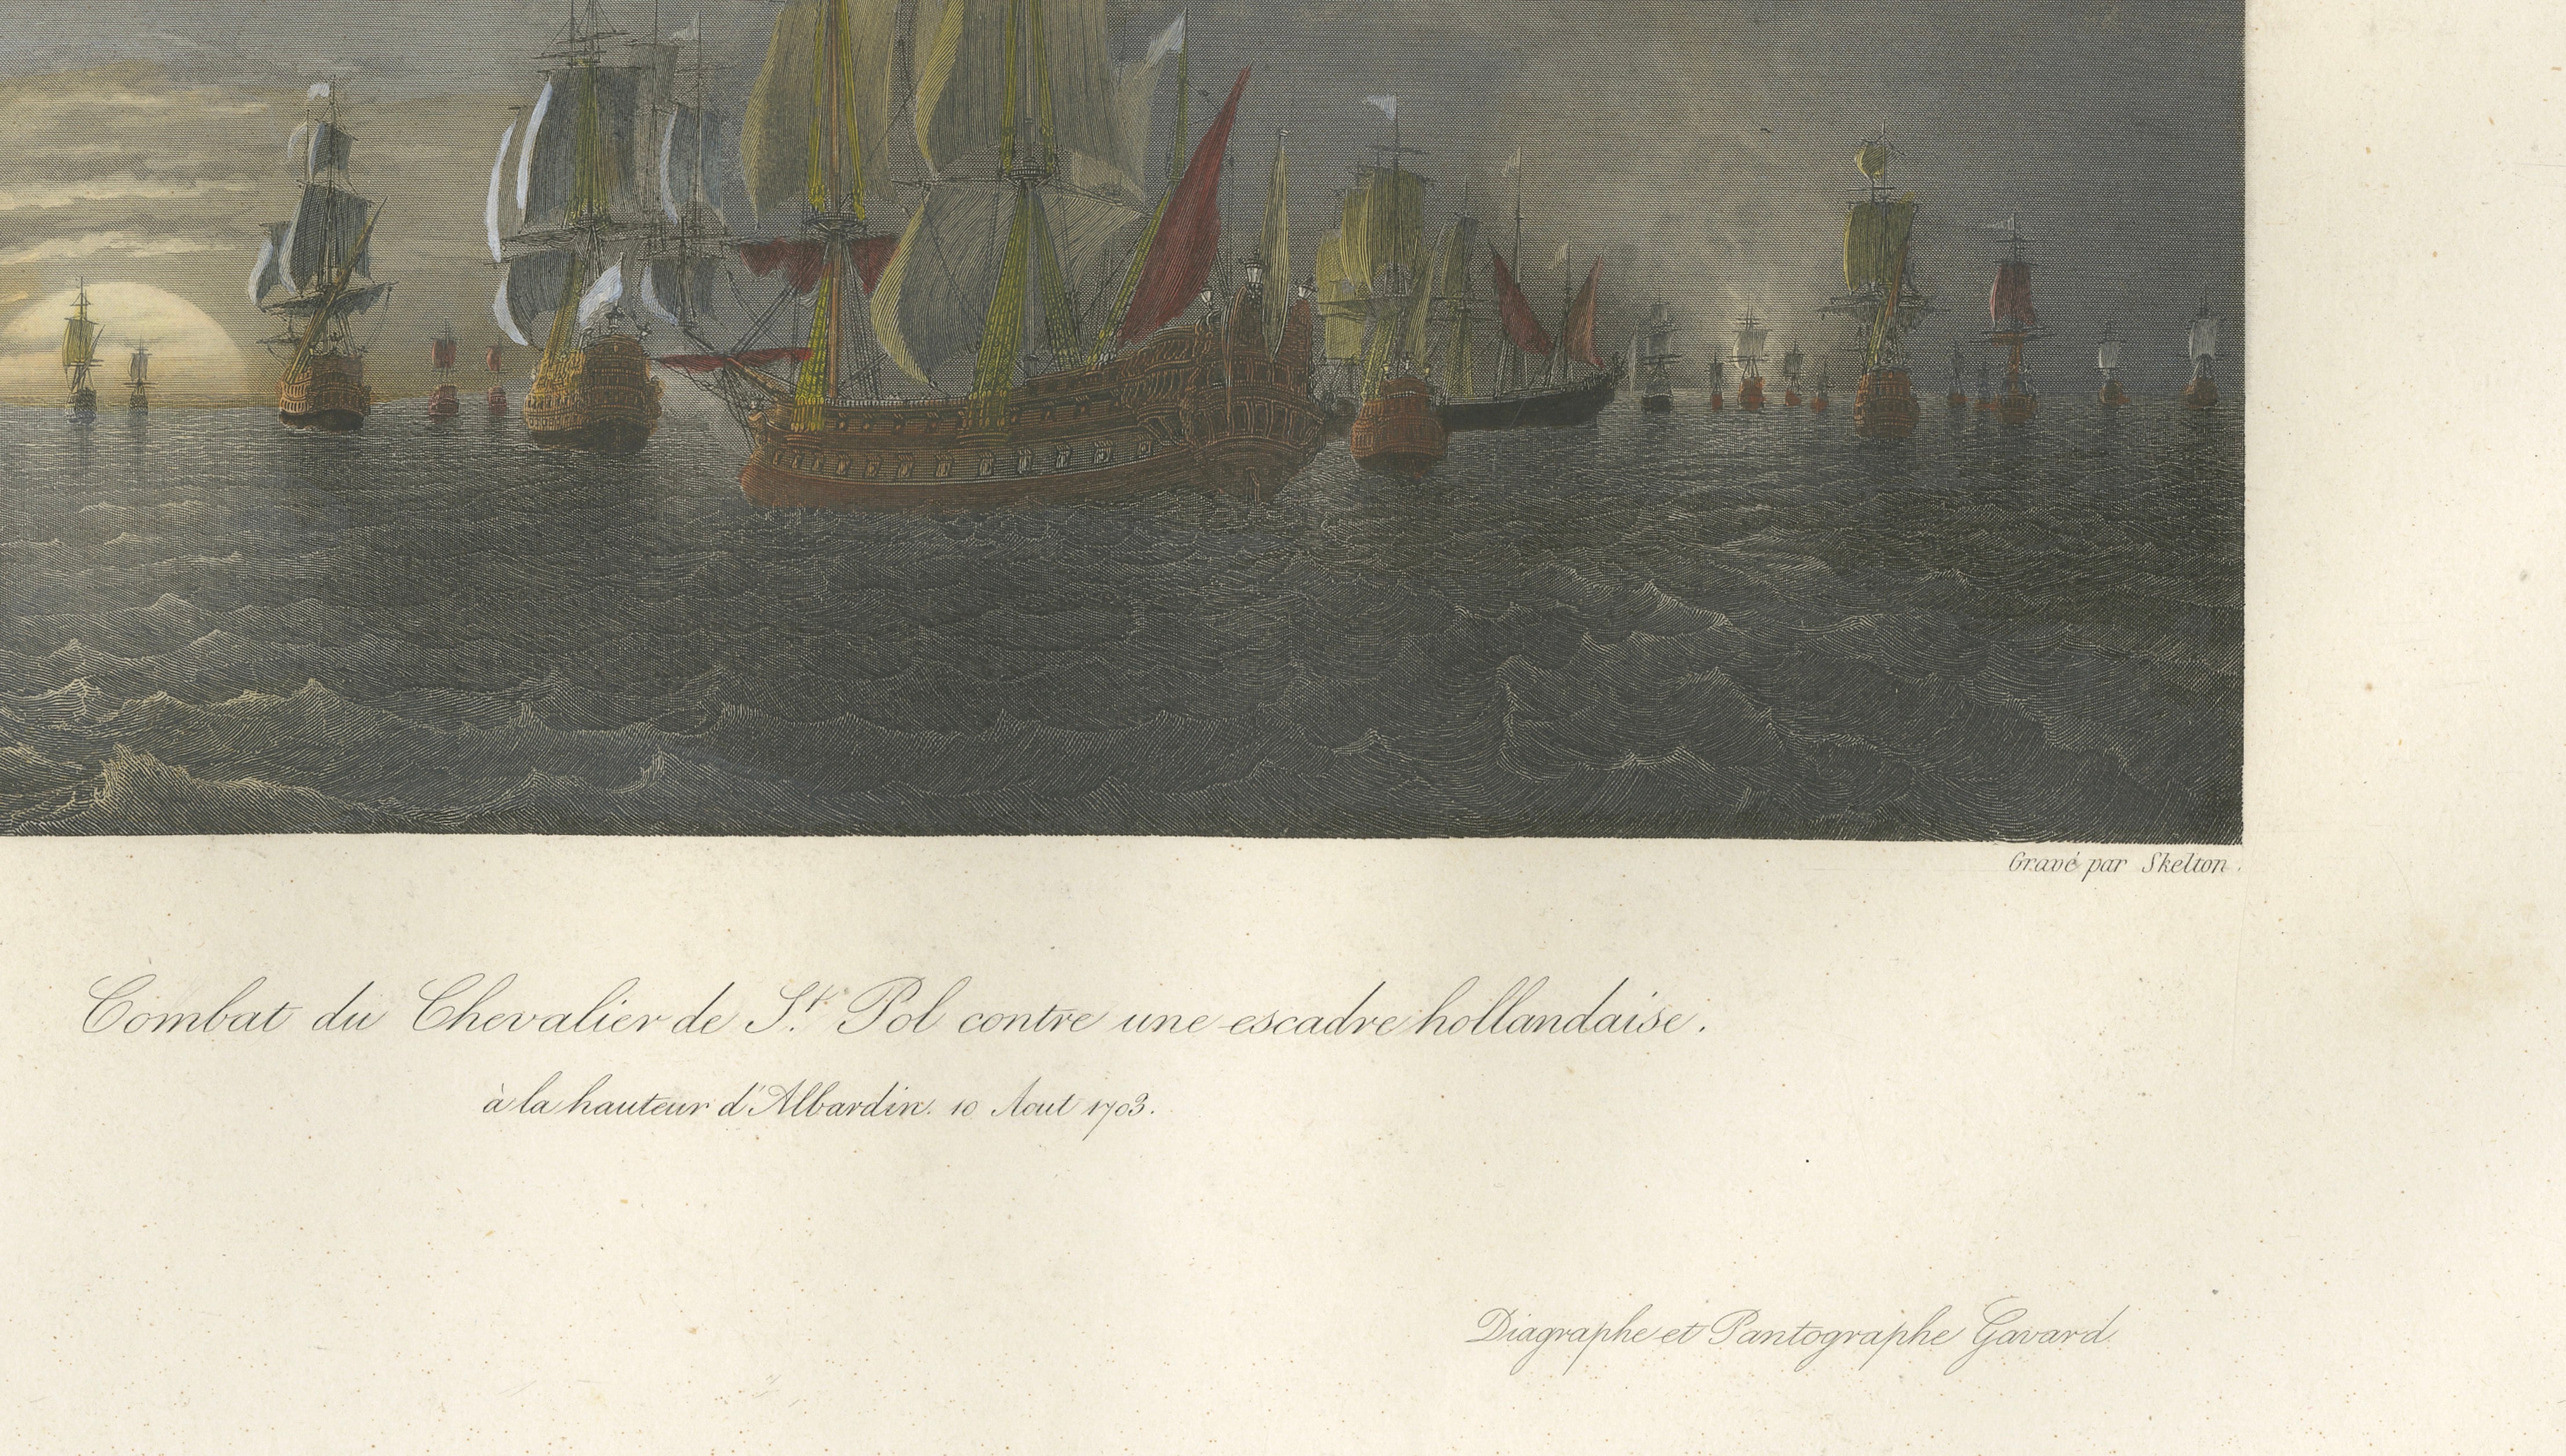 Gravé par Skelton.
Combat du Chevalier de St. Pol contre une escadre hollandaise.
à la hauteur d'Albardin. 10 Aout 1703.
Diagraphe et Pantographe Gavard.